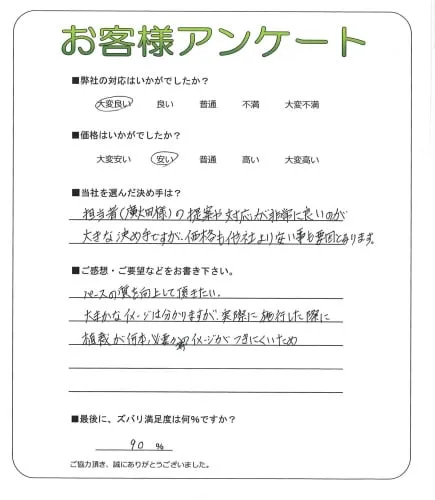 お客様アンケート
■弊社の対応はいかがでしたか？
大変良い 良い 普通 不満 大変不満
■価格はいかがでしたか？
大変安い 安い 普通 高い 大変高い
■当社を選んだ決め手は？
担当者(廣田様)の提案や対応が非常に良いのが
大きな決め手ですが、価格も他社より安い事も要因とあります。
■ご感想・ご要望などをお書き下さい。
パースの質を向上して頂きたい。
大まかなイメージは分かりますが、実際に施行した際に
植栽が何本必要か イメージがつきにくいため
■最後に、ズバリ満足度は何%ですか？
90 %
ご協力頂き、誠にありがとうございました。